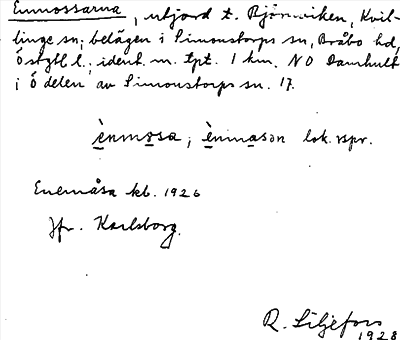 Enmossarna, utjord t. Björnviken, Kvil-
linge sn; belägen i Simonstorps sn, Bråbo hd,
Östgtl l.; ident. m. tpt. 1 km. NO Damhult
i Ö delen av Simonstorps sn. 17.
ènmosa, ènmasàn lok. rspr.
Enemåsa kb. 1926
Jfr. Karlsborg.
R. Liljefors
1928